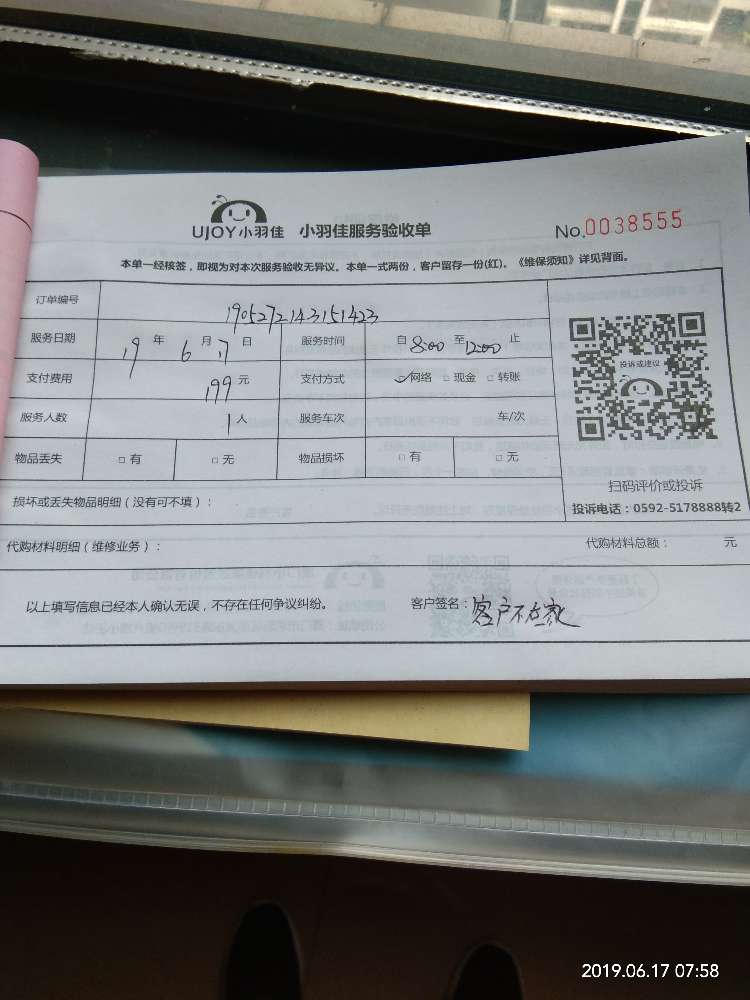 UJOY小羽佳 小羽佳服务验收单 No.0038555
本单一经核签，即视为对本次服务验收无异议。本单一式两份，客户留存一份(红)。《维保须知》详见背面。
订单编号 1905272143151423
服务日期 19 年 6 月 17 日 服务时间 自 8:00 至 12:00 止
支付费用 199 元 支付方式 ✓网络 □现金 □转账
服务人数 1人 服务车次 车/次
物品丢失 □有 □无 物品损坏 □有 □无
投诉或建议
扫码评价或投诉
投诉电话：0592-5178888转2
损坏或丢失物品明细（没有可不填）：
代购材料明细（维修业务）： 代购材料总额： 元
以上填写信息已经本人确认无误，不存在任何争议纠纷。 客户签名：客户不在家
2019.06.17 07:58